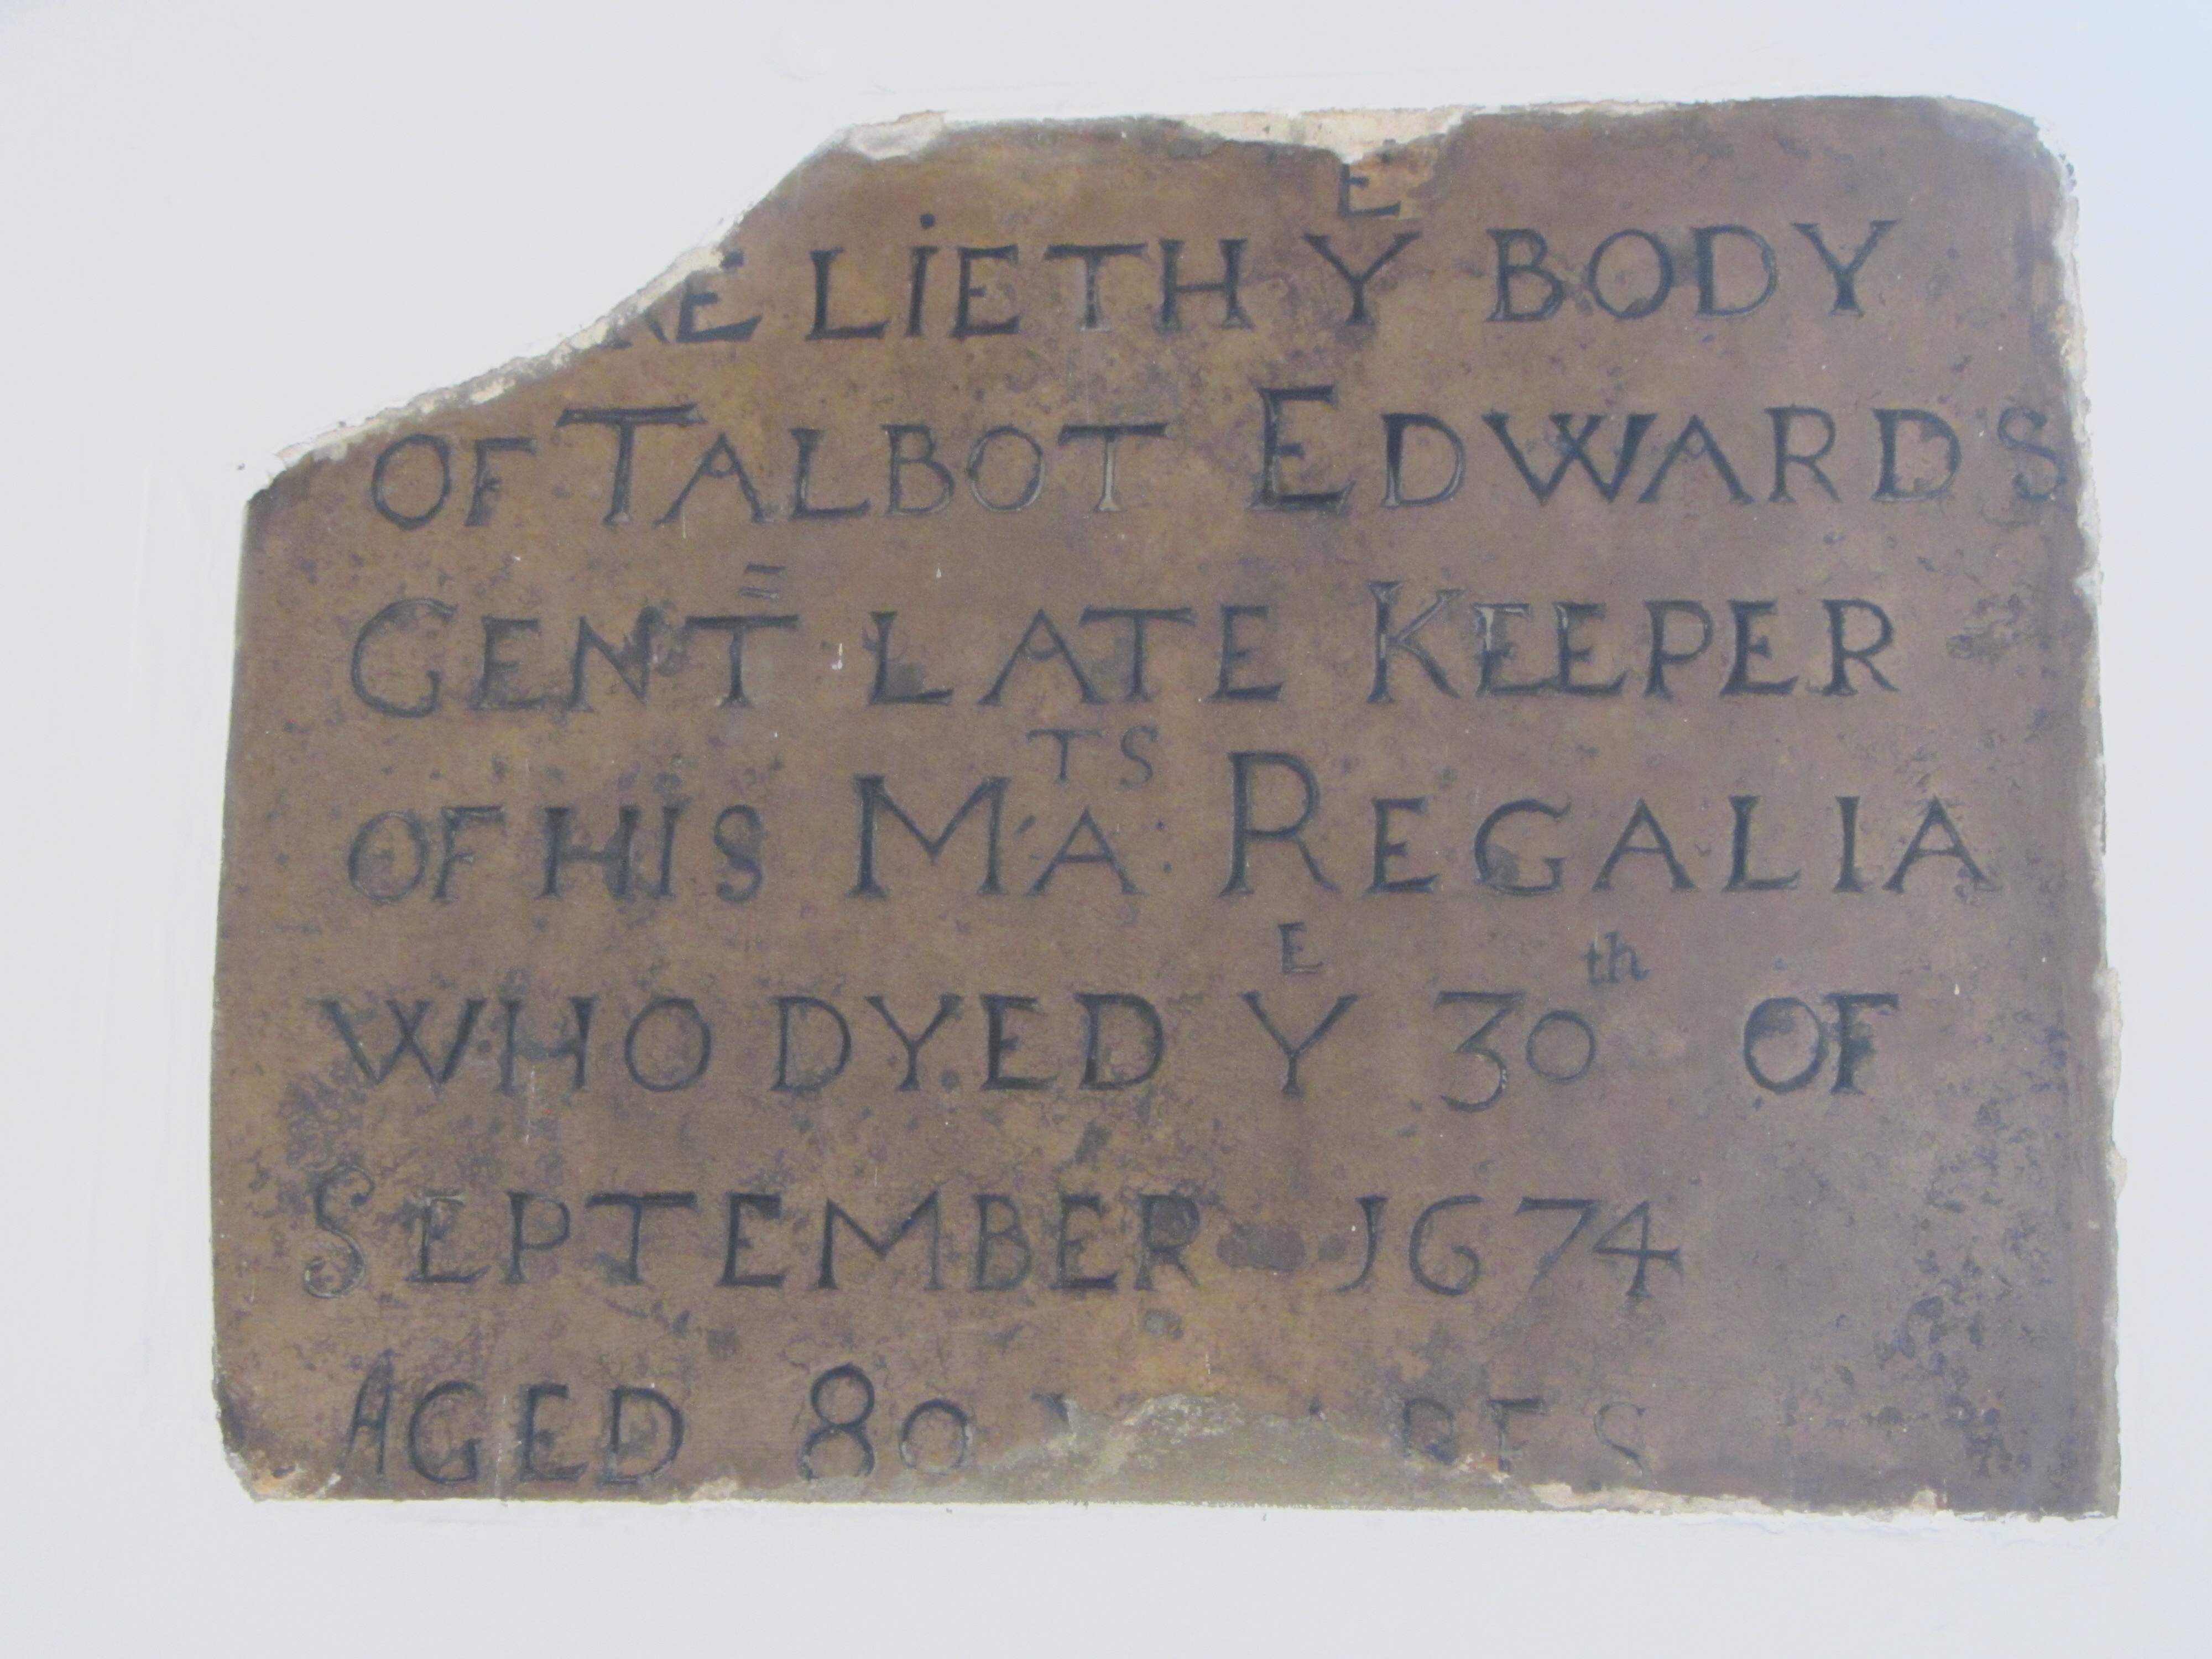 RE LIETH Yᴱ BODY
OF TALBOT EDWARDS
GENT LATE KEEPER
OF HIS MAᵀˢ REGALIA
WHO DYED Yᴱ 30ᵗʰ OF
SEPTEMBER 1674
AGED 80